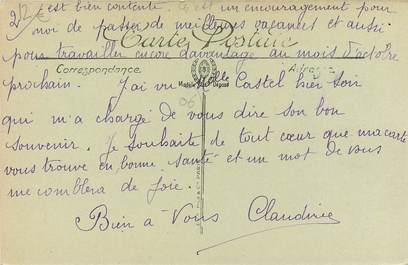 est bien contente. C'est un encouragement pour
moi de passer de meilleures vacances et aussi
Carte Postale
pour travailler encore davantage au mois d'octobre
Correspondance
prochain. J'ai vu Mlle Castel hier soir
qui m'a chargé de vous dire son bon
souvenir. Je souhaite de tout cœur que ma carte
vous trouve en bonne santé et un mot de vous
me comblera de joie.
Bien à Vous Claudinie